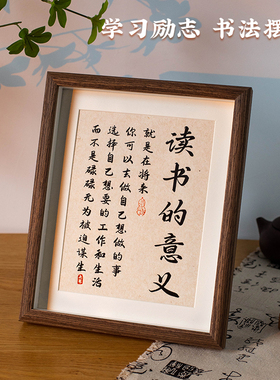 学习励志 书法摆
读书的意义
就是在将来
你可以去做自己想做的事
选择自己想要的工作和生活
而不是碌碌无为被迫谋生